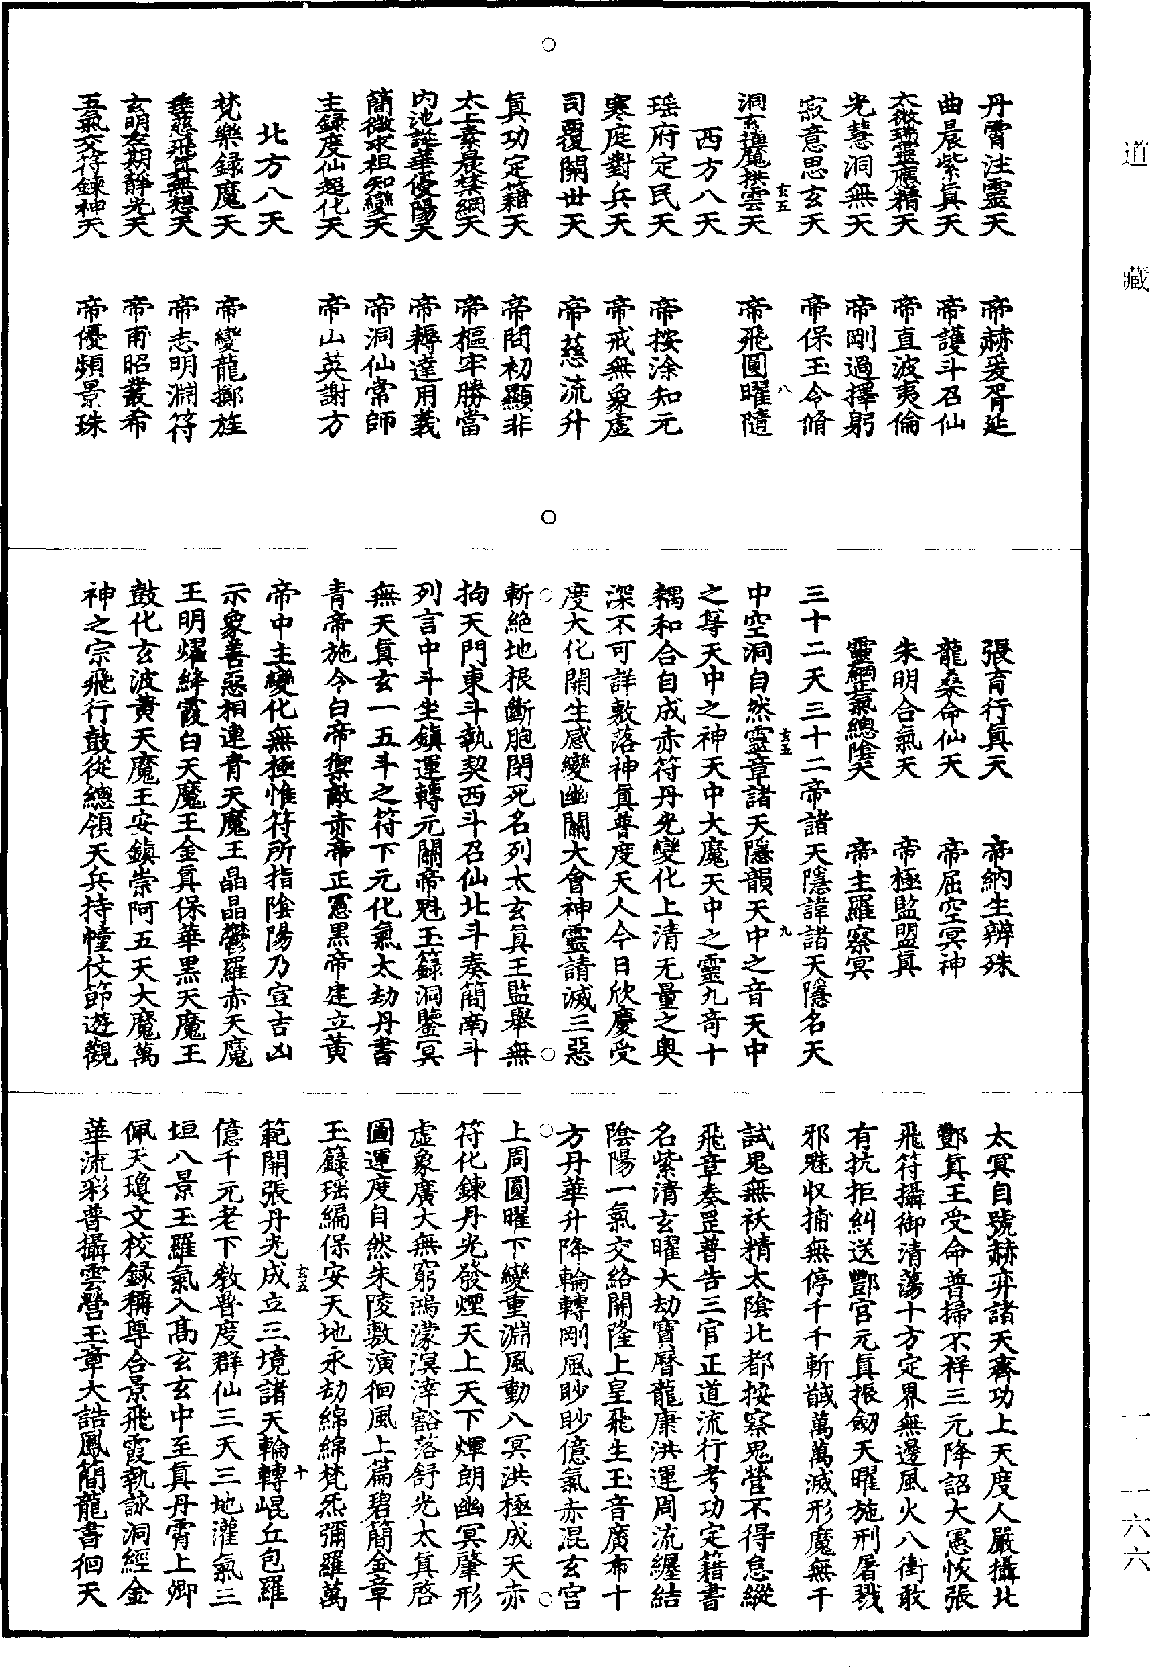 道藏
丹霄注靈天　帝赫爰胥延
曲晨紫真天　帝護斗召仙
太微瑞靈應精天　帝直波夷倫
光慧洞無天　帝剛過擇躬
寂意思玄天　帝保玉令脩
洞玄攝魔拱雲天　帝飛圓曜隨
玄五　八
西方八天
瑶府定民天　帝按涂知元
寒庭對兵天　帝戒無象虚
司覆開世天　帝慈流升
真功定籍天　帝問初顯非
太上素晨禁綱天　帝樞牢勝當
内池謡華優陽天　帝耨達用義
簡微求祖知變天　帝洞仙常師
主録度仙超化天　帝山英謝方
北方八天
梵樂録魔天　帝變龍擲旌
垂慈飛真無想天　帝志明淵符
玄明冬期靜光天　帝甫昭叢希
五氣交符鍊神天　帝優頻景珠
張育行真天　帝納生辨殊
龍桑命仙天　帝屈空冥神
朱明合氣天　帝極監盟真
靈綱炁總陰天　帝主羅察冥
三十二天三十二帝諸天隱諱諸天隱名天
中空洞自然靈章諸天隱韻天中之音天中
玄五　九
之尊天中之神天中大魔天中之靈九奇十
耦和合自成赤符丹光變化上清无量之奥
深不可詳敷落神真普度天人今日欣慶受
度大化開生感變幽關大會神靈請滅三惡
斬絶地根斷胞閉死名列太玄真王監舉無
拘天門東斗執契西斗召仙北斗奏簡南斗
列言中斗坐鎮運轉元關帝魁玉籙洞鑒冥
無天真玄一五斗之符下元化氣太劫丹書
青帝施令白帝禦敵赤帝正憲黑帝建立黄
帝中主變化無極惟符所指陰陽乃宣吉凶
示象善惡相連青天魔王晶晶鬱羅赤天魔
王明燿絳霞白天魔王金真保華黑天魔王
鼓化玄波黄天魔王安鎮崇阿五天大魔萬
神之宗飛行鼓從總領天兵持幢仗節遊觀
太冥自號赫弈諸天齊功上天度人嚴攝北
酆真王受命普掃不祥三元降詔大憲恢張
飛符攝御清蕩十方定界無邊風火八衝敢
有抗拒糾送酆官元真振劒天曜施刑屠戮
邪魅收捕無停千千斬馘萬萬滅形魔無干
試鬼無袄精太陰北都按察鬼營不得怠縱
飛章奏罡普告三官正道流行考功定籍書
名紫清玄曜大劫寶曆龍康洪運周流纏結
陰陽一氣交絡開隆上皇飛生玉音廣布十
方丹華升降輪轉剛風眇眇億氣赤混玄宫
上周圓曜下變重淵風動八冥洪極成天赤
符化鍊丹光發煙天上天下煇朗幽冥肇形
虚象廣大無窮鴻濛溟涬豁落舒光太真啓
圖運度自然朱陵敷演徊風上篇碧簡金章
玉籙瑶編保安天地永劫綿綿梵炁彌羅萬
範開張丹光成立三境諸天輪轉崐丘包羅
玄五　十
億千元老下教普度群仙三天三地灌氣三
垣八景玉羅氣入髙玄玄中至真丹霄上卿
佩天瓊文校録稱尊合景飛霞執詠洞經金
華流彩普攝雲營玉章大誥鳳簡龍書徊天
一—一六六